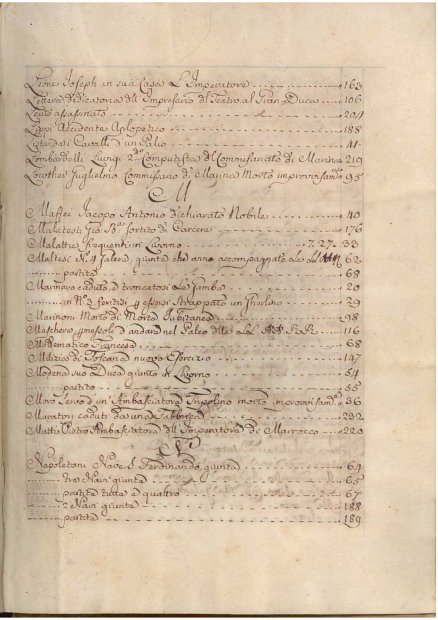 Leone Joseph in sua Casa L'Imperatore 163
Lettera dedicatoria dell Impresario del Teatro al Gran Duca 106
Leuto assassinato 204
Lupi Accidente Aplopetico 188
Lista dei Cavalli d'un Palio 41
Lombardelli Luigi 2do Computista del Commisariato di Marina 219
Lowther Guglielmo Commisario di Marina Morto improvvisamte 95
M
Maffei Jacopo Antonio dichiarato Nobile 40
Malatesti sortito di Carcere 176
Malattie frequenti in Livorno 7. 27. 33
Maltesi No 4 Galere giunte che anno accompagnato Le LL 62
partite 68
Marinaro caduto e troncatosi Le Gambe 20
in No 3 feriti essersi Strappato un Gherlino 29
Marinoni Morto di Morte Subitanea 98
Maschere andare nel Paleo delle LL AA RR 116
Mattematico Francese 68
Milizie di Toscana nuovo Esercizio 147
Modena suo Duca giunto in Livorno 54
partito 55
Moro servo d'un Ambasciatore Tripolino morto improvvisamte 86
Muratori caduti da una Fabbrica 232
Mutti Pietro Ambasciatore dell Imperatore di Marrocco 220
N
Napoletani Nave S. Ferdinando giunta 64
tre Navi giunte 65
partite tutte a quattro 67
2 Navi giunte 188
partite 189